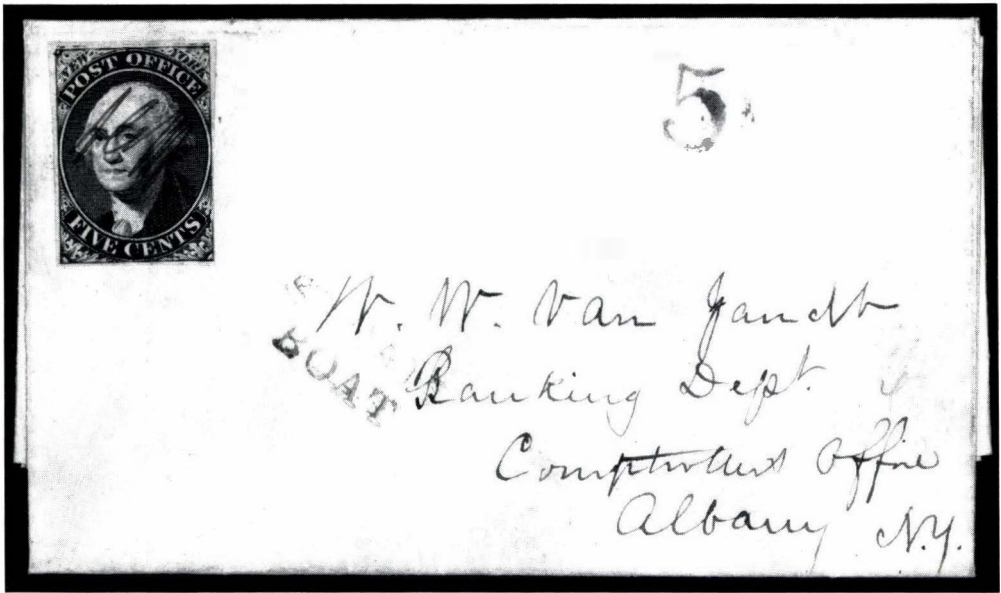 NEW YORK
POST OFFICE
FIVE CENTS
5
BOAT
W. W. Van
Banking Dept.
Comptrollers Office
Albany N.Y.